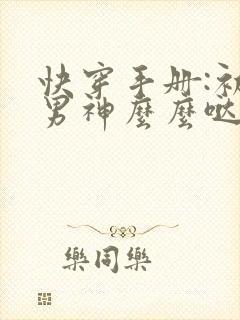 快穿手册:初
男神麼麼哒
樂同樂